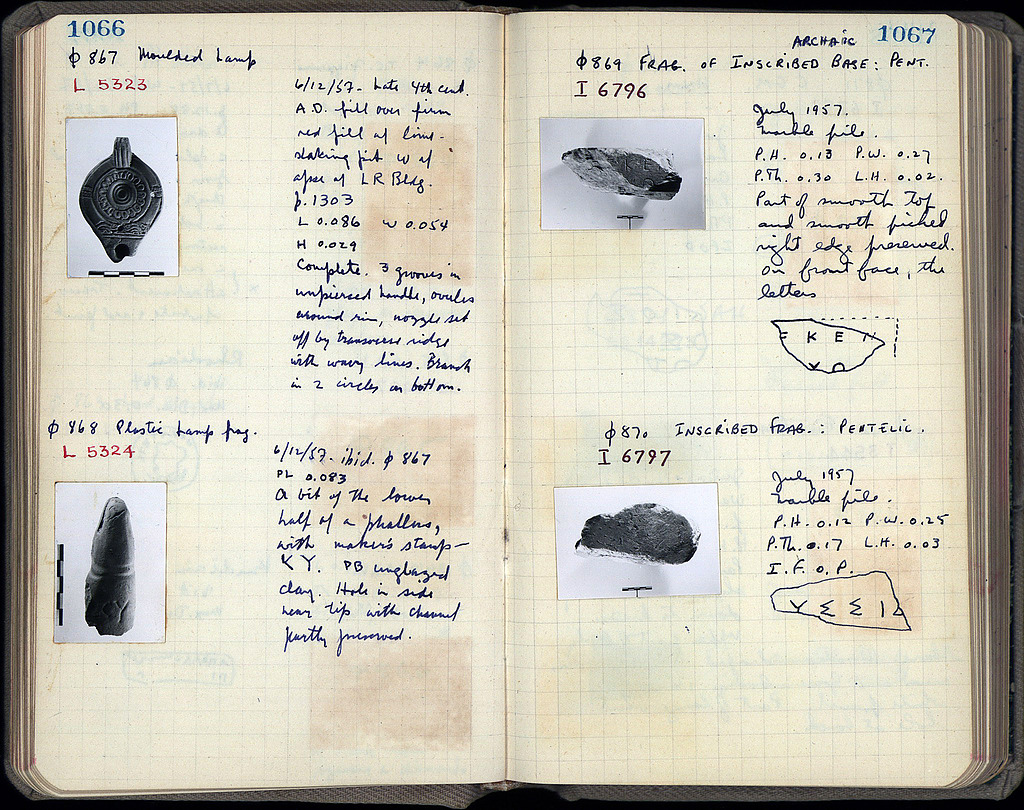 1066
φ 867 Moulded Lamp
L 5323
6/12/57 - Late 4th cent.
A.D. fill over firm
red fill of lime-
slaking pit W of
apse of LR Bldg.
p. 1303
L 0.086 W 0.054
H 0.029
Complete. 3 grooves in
unpierced handle, ovules
around rim, nozzle set
off by transverse ridge
with wavy lines. Branch
in 2 circles on bottom.
φ 868 Plastic Lamp frag.
L 5324
6/12/57 - ibid. φ 867
PL 0.083
A bit of the lower
half of a phallus,
with maker's stamp—
KY. PB unglazed
clay. Hole in side
near tip with channel
partly preserved.
ARCHAIC 1067
φ869 FRAG. OF INSCRIBED BASE: PENT.
I 6796
July 1957.
Marble pile.
P.H. 0.13 P.W. 0.27
P.Th. 0.30 L.H. 0.02.
Part of smooth top
and smooth picked
right edge preserved.
On front face, the
letters
K E
φ870 INSCRIBED FRAG.: PENTELIC.
I 6797
July 1957
Marble pile.
P.H. 0.12 P.W. 0.25
P.Th. 0.17 L.H. 0.03
I.F.O.P.
Υ Σ Σ Ι